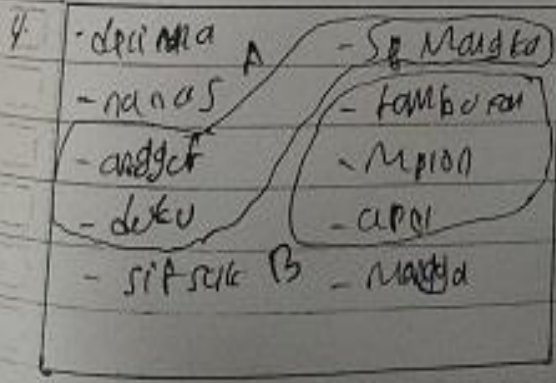 4.
- delima
- nanas
- anggur
- duku
- sirsak
A
- Semangka
- rambutan
- Melon
- apel
- Mangga
B